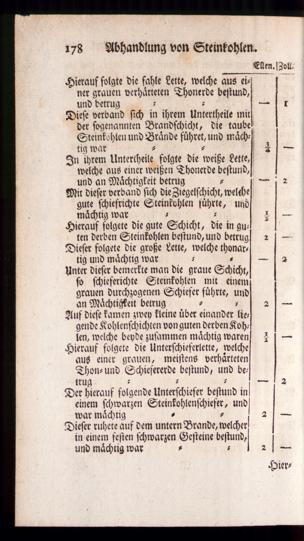 178 Abhandlung von Steinkohlen.
Ellen. Zoll.
Hierauf folgte die fahle Lette, welche aus ei-
ner grauen verhärteten Thonerde bestund,
und betrug — 1
Diese verband sich in ihrem Untertheile mit
der sogenannten Brandschicht, die taube
Steinkohlen und Brände führet, und mäch-
tig war —
In ihrem Untertheile folgte die weiße Lette,
welche aus einer weißen Thonerde bestund,
und an Mächtigkeit betrug — 2
Mit dieser verband sich die Ziegelschicht, welche
gute schiefrichte Steinkohlen führte, und
mächtig war ½ —
Hierauf folgete die gute Schicht, die in gu-
ten derben Steinkohlen bestund, und betrug 2 —
Dieser folgete die große Lette, welche thonar-
tig und mächtig war — 2
Unter dieser bemerkte man die graue Schicht,
so schieferichte Steinkohlen mit einem
grauen durchzogenen Schiefer führte, und
an Mächtigkeit betrug 2 —
Auf diese kamen zwey kleine über einander lie-
gende Kohlenschichten von guten derben Koh-
len, welche beyde zusammen mächtig waren ½ —
Hierauf folgete die Unterschieferlette, welche
aus einer grauen, meistens verhärteten
Thon- und Schiefererde bestund, und be-
trug — 2
Der hierauf folgende Unterschiefer bestund in
einem schwarzen Steinkohlenschiefer, und
war mächtig 2 —
Dieser ruhete auf dem untern Brande, welcher
in einem festen schwarzen Gesteine bestund,
und mächtig war 2 —
Hier-